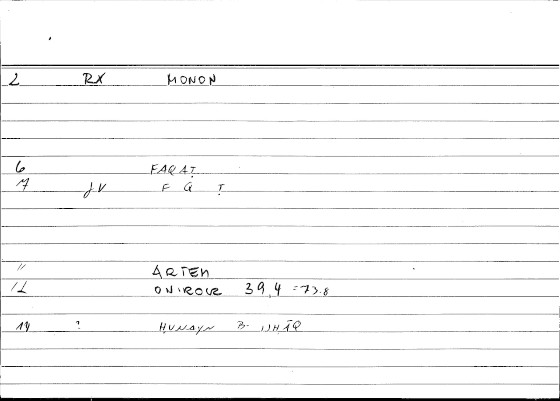 2 RX MONON
6 FAQAṬ
7 JV F Q Ṭ
" ARTEM
12 ONIROCR 39,4 = 73.8
14 ? ḤUNAYN B. ISḤĀQ